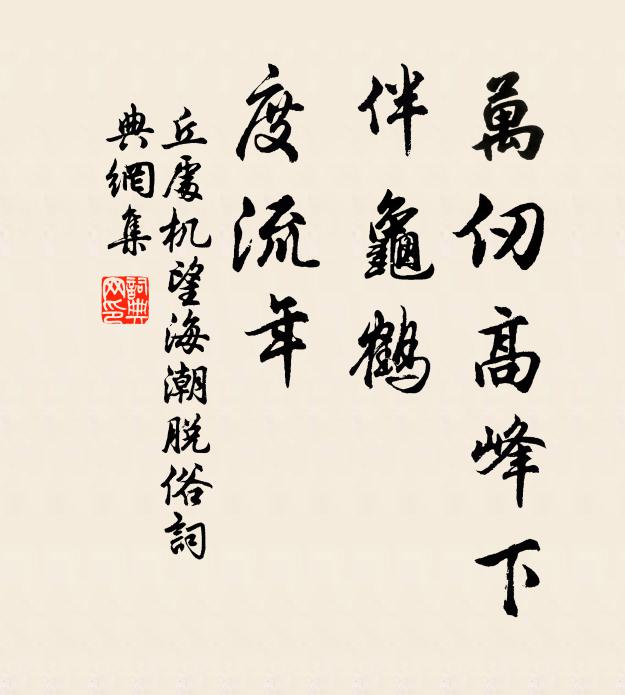 萬仞高峰下
伴龜鶴
度流年
丘處机望海潮脱俗詞
典網集
詞典网印